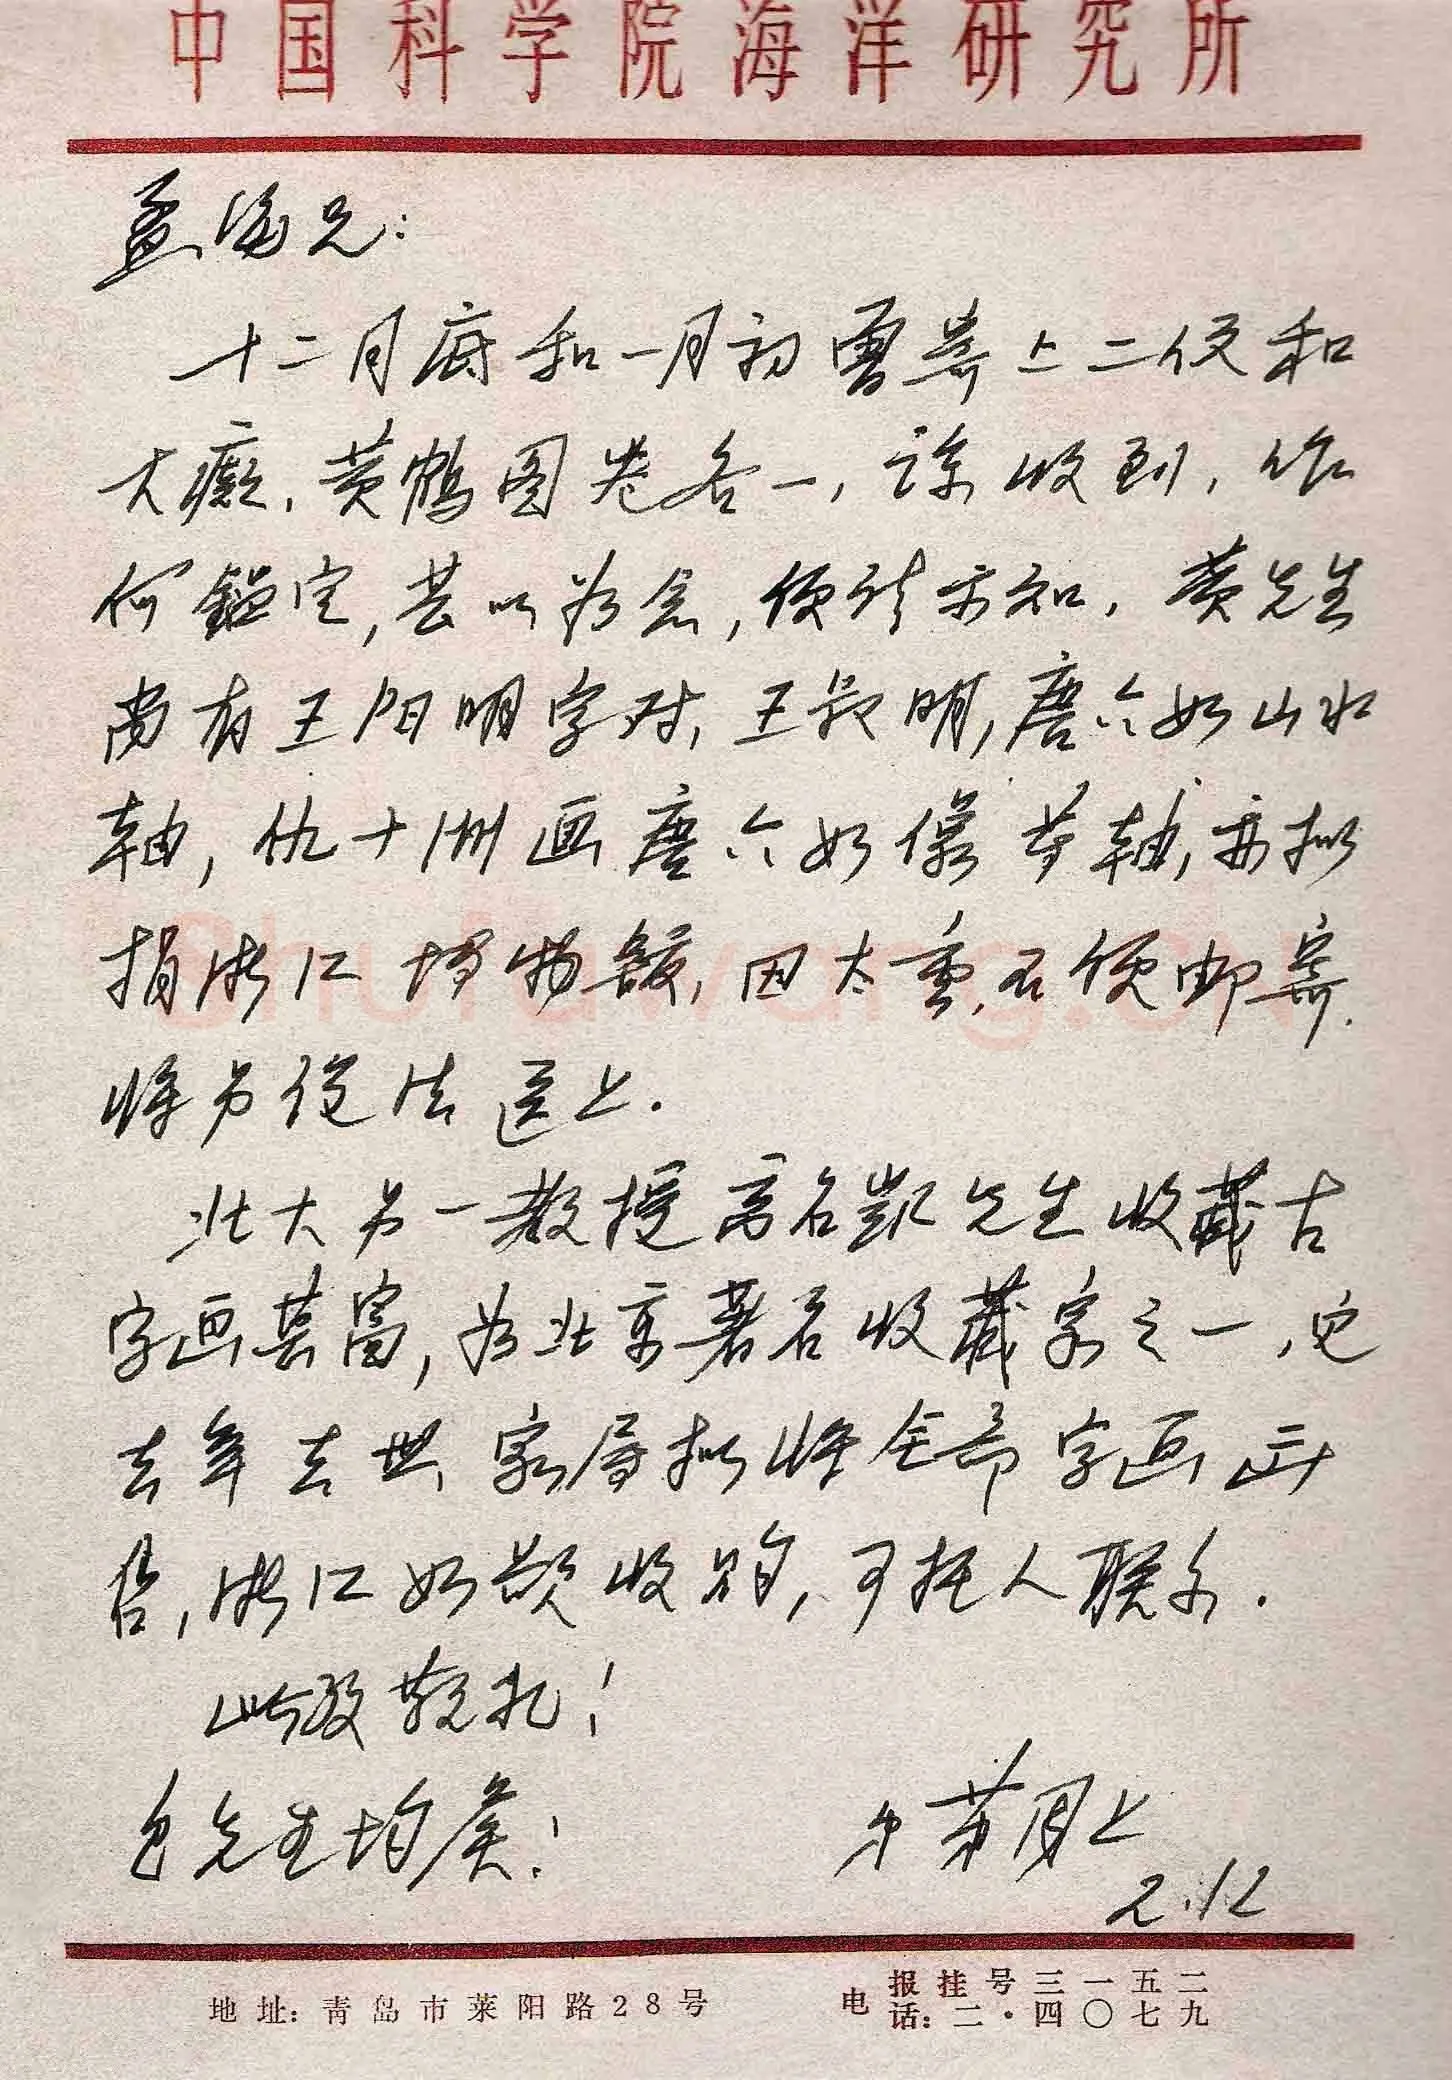 中国科学院海洋研究所
孟海兄：
十二月底和一月初曾寄上二信和
大癡、黄鹤图卷各一，谅收到，作
何鑑定，甚以为念，便请示知。黄先生
尚有王阳明字对，王明，唐六如山水
轴，仇十洲画唐六如像等轴，亦拟
捐浙江博物馆，因太重，不便邮寄，
将另设法送上。
北大另一教授高名凯先生收藏古
字画甚富，为北京著名收藏家之一，他
去年去世，家属拟将全部字画出
售，浙江如欲收购，可托人联系。
此致敬礼！
包先生均候！
弟茀周上
2.12
地址：青岛市莱阳路28号
电报挂号三一五二
电话：二·四〇七九
shufawang.cn